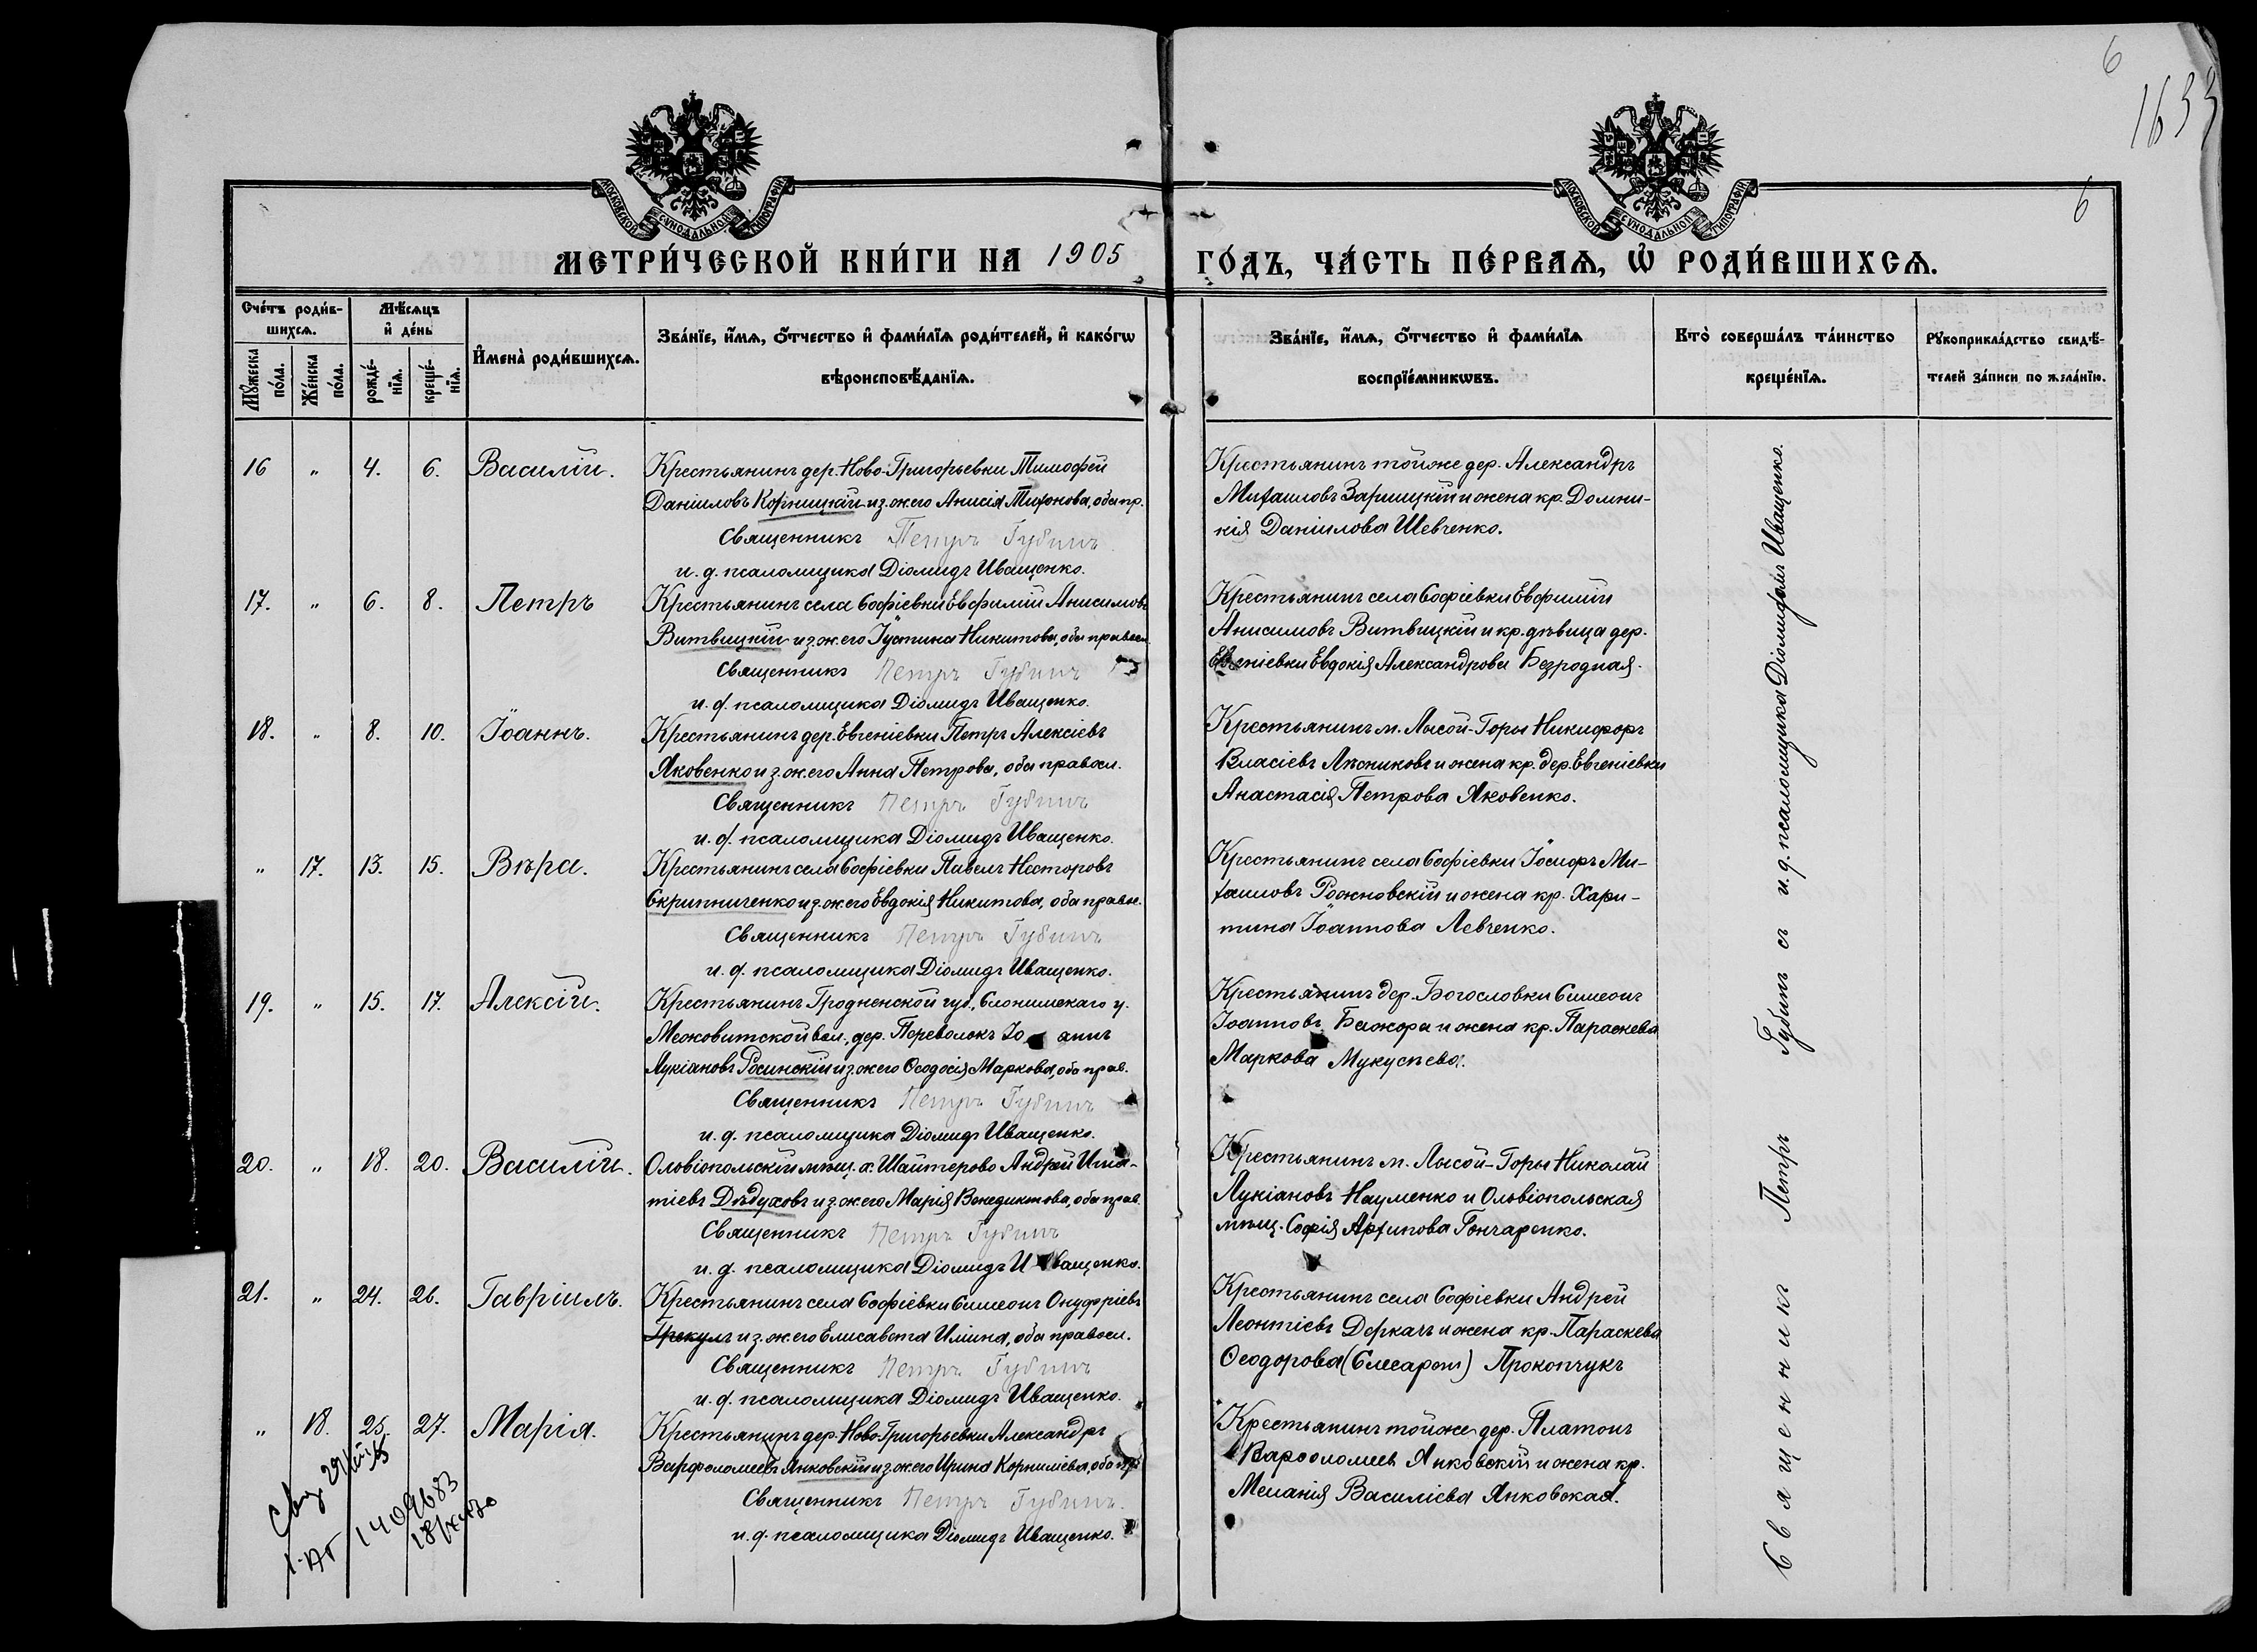 6
1633
6
МОСКОВСКОЙ СѴНОДАЛЬНОЙ ТИПОГРАФІИ
МОСКОВСКОЙ СѴНОДАЛЬНОЙ ТИПОГРАФІИ
МЕТРИ́ЧЕСКОЙ КНИ́ГИ НА 1905 ГО́ДЪ, ЧА́СТЬ ПЕ́РВАѦ, Ѽ РОДИ́ВШИХСѦ.
Сче́тъ роди́в-
шихсѧ.
Мѣ́сѧцъ
и҆ де́нь
Мꙋ́жеска по́ла.
Же́нска по́ла.
рожде́-
нїѧ.
креще́-
нїѧ.
И҆мена̀ роди́вшихсѧ.
Зва́нїе, и҆́мѧ, ѻ҆́тчество и҆ фами́лїѧ роди́телей, и҆ како́гѡ
вѣроисповѣ́данїѧ.
Зва́нїе, и҆́мѧ, ѻ҆́тчество и҆ фами́лїѧ
воспрїе́мникѡвъ.
Кто̀ соверша́лъ та́инство
креще́нїѧ.
Рꙋкоприкла́дство свидѣ́-
телей за́писи по жела́нїю.
16 " 4. 6. Василій.
Крестьянинъ дер. Ново-Григорьевки Тимофей
Даніиловъ Корницкій и з. ж. его Анисія Тифонова, оба пр.
Священникъ Петръ Губинъ
и. д. псаломщика Діомидъ Иващенко.
Крестьянинъ тойже дер. Александръ
Михаиловъ Зарицкій и жена кр. Домни-
кія Даніилова Шевченко.
17. " 6. 8. Петръ
Крестьянинъ села Софіевки Евфимій Анисимовъ
Витвицкій и з. ж. его Іустина Никитова, оба правосл.
Священникъ Петръ Губинъ
и. д. псаломщика Діомидъ Иващенко.
Крестьянинъ села Софіевки Евфимій
Анисимовъ Витвицкій и кр. дѣвица дер.
Евгеніевки Евдокія Александрова Безродная.
18. " 8. 10. Іоаннъ.
Крестьянинъ дер. Евгеніевки Петръ Алексіевъ
Яковенко и з. ж. его Анна Петрова, оба правосл.
Священникъ Петръ Губинъ
и. д. псаломщика Діомидъ Иващенко.
Крестьянинъ м. Лысой-Горы Никифоръ
Власіевъ и жена кр. дер. Евгеніевки
Анастасія Петрова Яковенко.
" 17. 13. 15. Вѣра.
Крестьянинъ села Софіевки Павелъ Несторовъ
Скрипниченко и з. ж. его Евдокія Никитова, оба правос.
Священникъ Петръ Губинъ
и. д. псаломщика Діомидъ Иващенко.
Крестьянинъ села Софіевки Іосифъ Ми-
хаиловъ Рожновскій и жена кр. Хари-
тина Іоаннова Левченко.
19. " 15. 17. Алексій.
Крестьянинъ Гродненской губ., Слонимскаго у.
Межовитской вол., дер. Переволокъ Іо аннъ
Лукіановъ Росинскій и з. ж. его Ѳеодосія Маркова, оба прав.
Священникъ Петръ Губинъ
и. д. псаломщика Діомидъ Иващенко.
Крестьянинъ дер. Богословки Симеонъ
Іоанновъ Бажора и жена кр. Параскева
Маркова Мукусѣева.
20. " 18. 20. Василій.
Оловіопольскій мѣщ. х. Шайтерово Андрей Игна-
тіевъ Дѣдуховъ и з. ж. его Марія Венедиктова, оба прав.
Священникъ Петръ Губинъ
и. д. псаломщика Діомидъ И ващенко.
Крестьянинъ м. Лысой-Горы Николай
Лукіановъ Науменко и Ольвіопольская
мѣщ. Софія Архипова Гончаренко.
21. " 24. 26. Гавріилъ.
Крестьянинъ села Софіевки Симеонъ Онуфріевъ
Грекулъ и з. ж. его Елисавета Иліина, оба правосл.
Священникъ Петръ Губинъ
и. д. псаломщика Діомидъ Иващенко.
Крестьянинъ села Софіевки Андрей
Леонтіевъ Деркачъ и жена кр. Параскева
Ѳеодорова (Слесарет) Прокопчукъ
" 18. 25. 27. Марія.
Крестьянинъ дер. Ново-Григорьевки Александръ
Варфоломеевъ Янковскій и з. ж. его Ирина Корниліева, оба пр.
Священникъ Петръ Губинъ.
и. д. псаломщика Діомидъ Иващенко.
Крестьянинъ тойже дер. Платонъ
Варѳоломеевъ Янковскій и жена кр.
Меланія Василіева Янковская.
Священникъ Петръ Губинъ съ и. д. псаломщика Діомидомъ Иващенко.
1409683